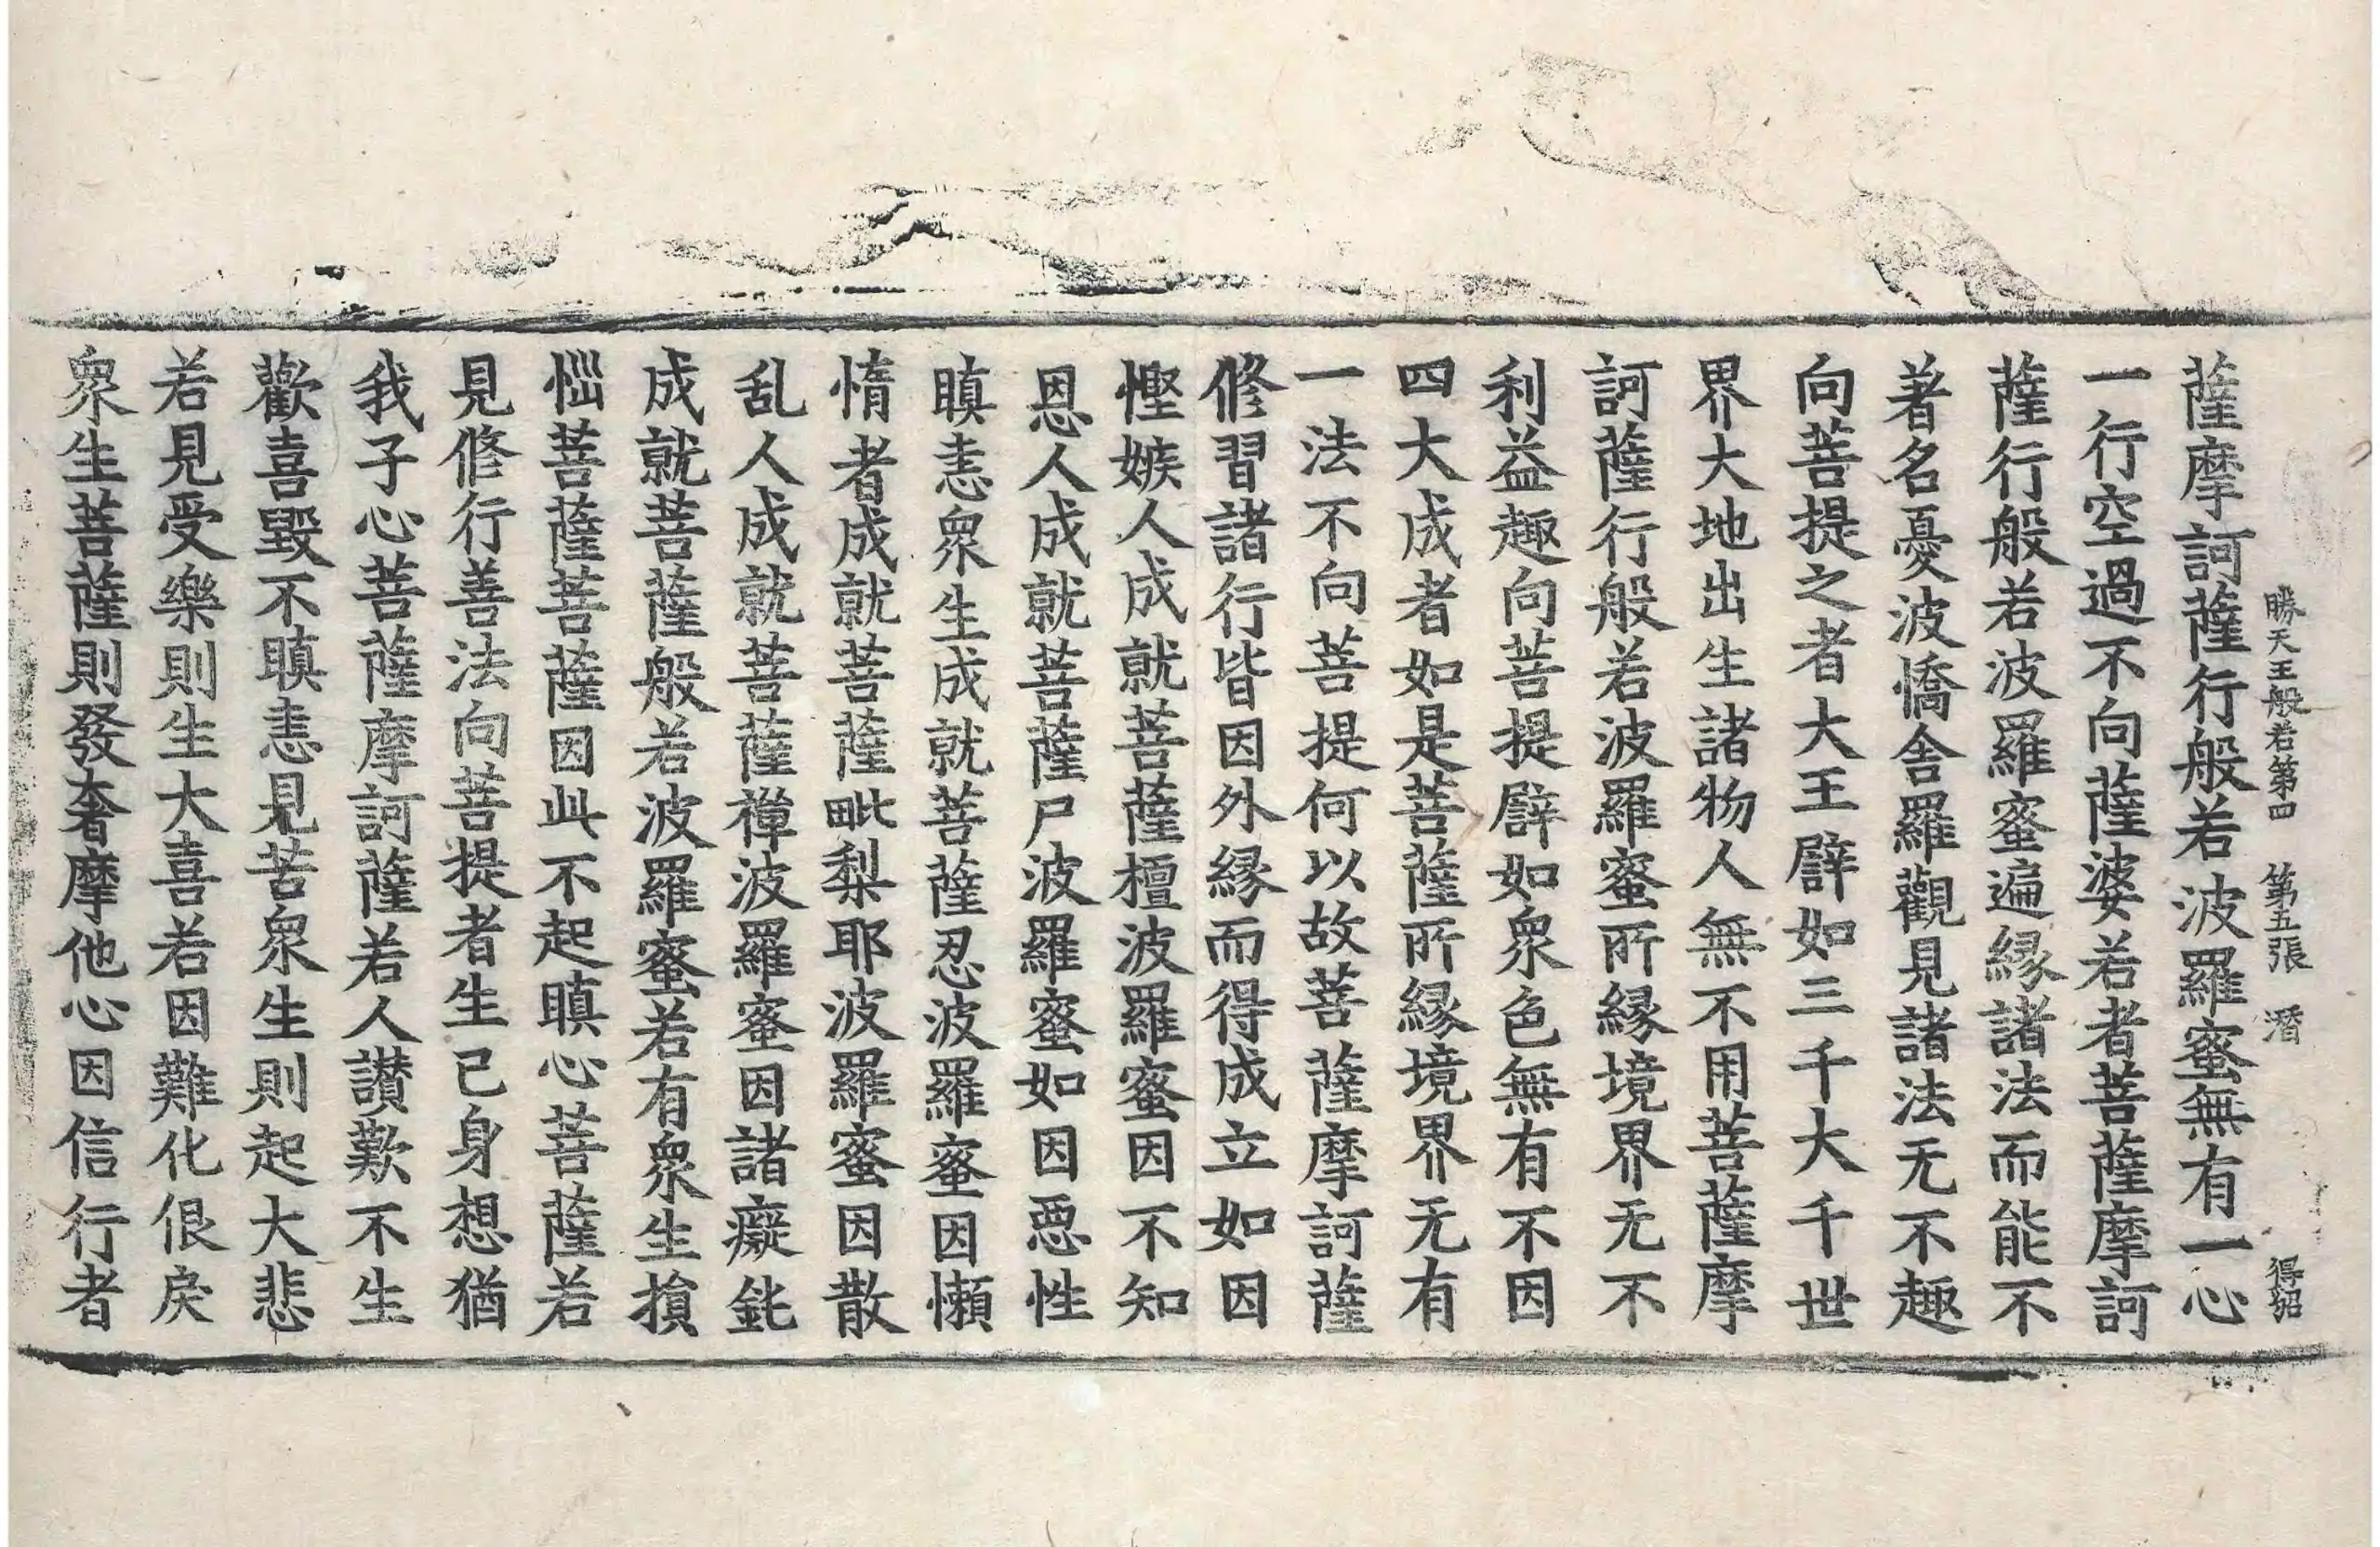 勝天王般若第四 第五張 潛 得招
薩摩訶薩行般若波羅蜜無有一心
一行空過不向薩婆若者菩薩摩訶
薩行般若波羅蜜遍縁諸法而能不
著名憂波憍舍羅觀見諸法无不趣
向菩提之者大王譬如三千大千世
界大地出生諸物人無不用菩薩摩
訶薩行般若波羅蜜所縁境界无不
利益趣向菩提譬如衆色無有不因
四大成者如是菩薩所縁境界无有
一法不向菩提何以故菩薩摩訶薩
修習諸行皆因外縁而得成立如因
慳嫉人成就菩薩檀波羅蜜因不知
恩人成就菩薩尸波羅蜜如因惡性
瞋恚衆生成就菩薩忍波羅蜜因懶
惰者成就菩薩毗梨耶波羅蜜因散
乱人成就菩薩禪波羅蜜因諸癡鈍
成就菩薩般若波羅蜜若有衆生損
惱菩薩菩薩因此不起瞋心菩薩若
見修行善法向菩提者生己身想猶
我子心菩薩摩訶薩若人讃歎不生
歡喜毀不瞋恚見苦衆生則起大悲
若見受樂則生大喜若因難化佷戾
衆生菩薩則發奢摩他心因信行者